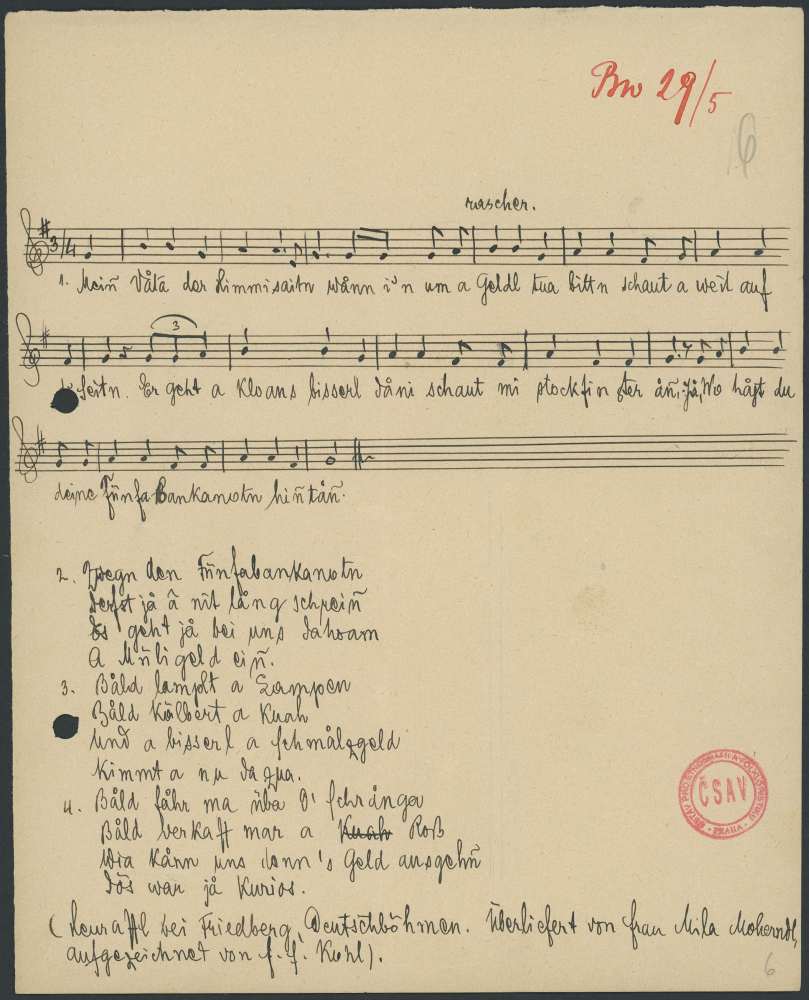 Bw 29/5
6
rascher.
3/4
1. Mein̄ Våta der Himmisaitn wånn i'n um a Geldl tua bittn schaut a weil auf
3
Seitn. Er geht a kloans bisserl dåni schaut mi stockfinster ån, Jå, Wo håst du
deine Fünfa Bankanotn hin̄tån.
2. Zwegn den Fünfabankanotn
derfst jå å nit lång schrein̄
Es geht jå bei uns dahoam
A Müligeld ein̄.
3. Båld lamplt a Lampen
Båld kålbert a Kuah
Und a bisserl a Schmålzgeld
kimmt a nu dazua.
4. Båld fåhr ma üba d' Schrånga
Båld verkaff mar a Kuah Roß
Wia kånn uns denn 's Geld ausgehn̄
dös war jå kurios.
(Heuraffl bei Friedberg, Deutschböhmen. Überliefert von Frau Mila Moherndl,
aufgezeichnet von f. f. Kuhl).
ČSAV
PRAHA
6